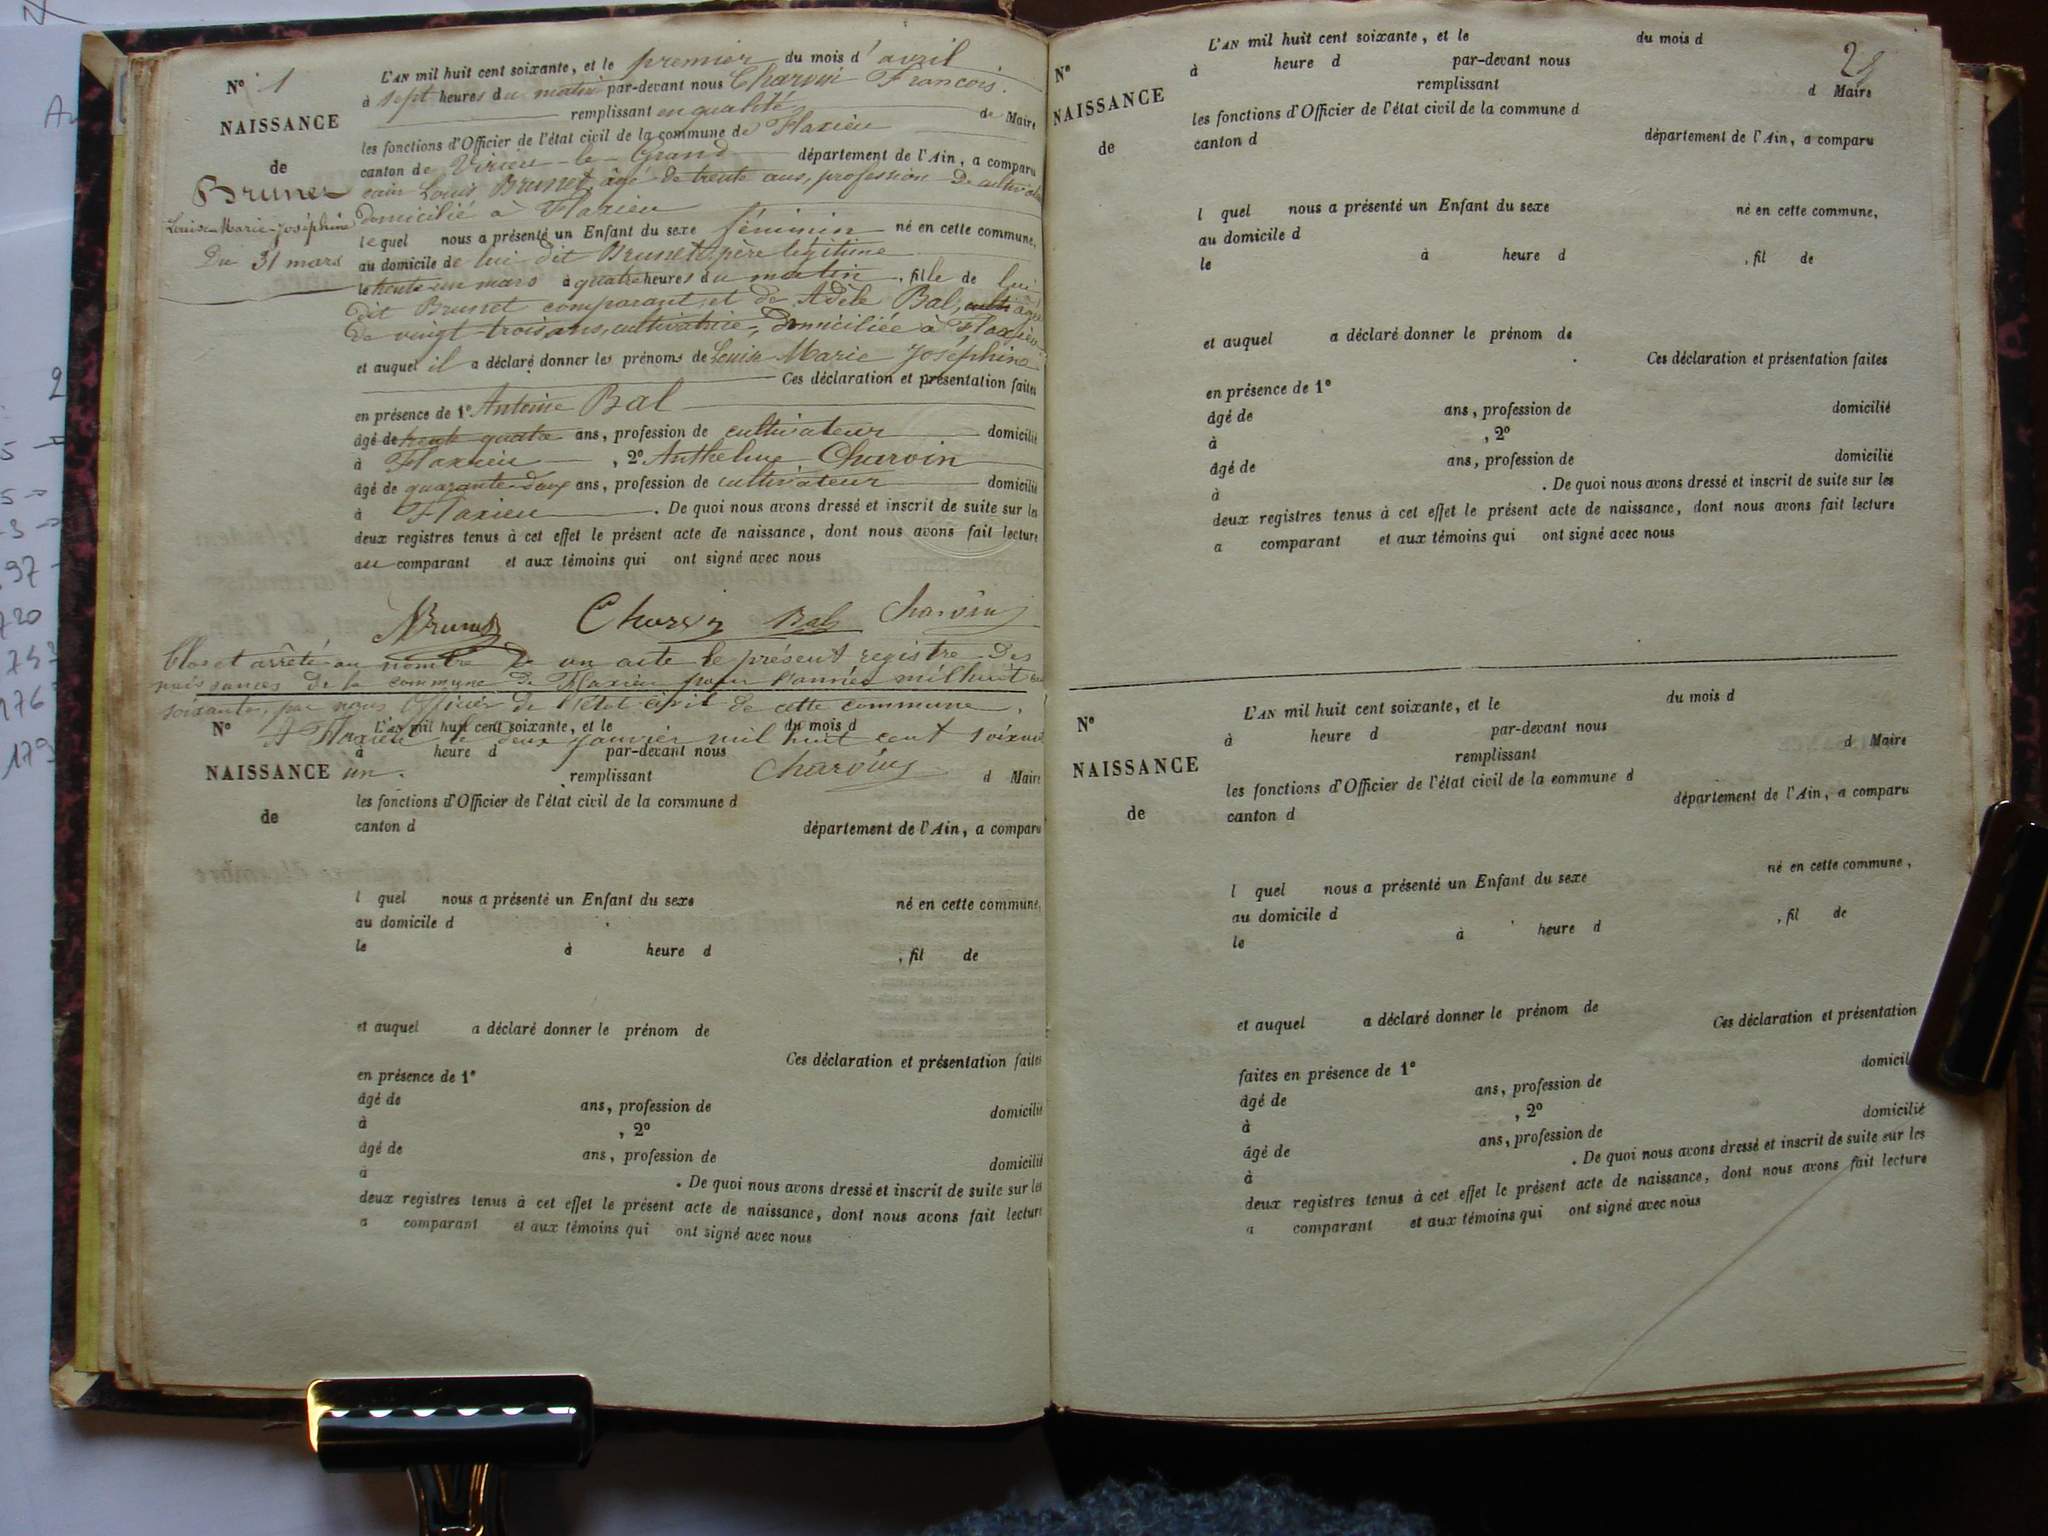 Nº 1
NAISSANCE
de
Brunet
Louise-Marie-Joséphine
Du 31 mars
L'AN mil huit cent soixante, et le premier du mois d'avril
à sept heures du matin par-devant nous Charvin François.
remplissant en qualité de Maire
les fonctions d'Officier de l'état civil de la commune de Flaxieu
canton de Virieu-le-Grand département de l'Ain, a comparu
Louis Brunet, âgé de trente ans, profession de
domicilié à Flaxieu
lequel nous a présenté un Enfant du sexe féminin né en cette commune,
au domicile de lui dit Brunet, père légitime
le trente un mars à quatre heures du matin, fille de lui
dit Brunet comparant, et de Adèle Bal, âgée
de vingt trois ans, cultivatrice, domiciliée à Flaxieu
et auquel il a déclaré donner les prénoms de Louise Marie Joséphine
Ces déclaration et présentation faites
en présence de 1º Antoine Bal
âgé de trente quatre ans, profession de cultivateur domicilié
à Flaxieu, 2º Anthelme Charvin
âgé de quarante-deux ans, profession de cultivateur domicilié
à Flaxieu. De quoi nous avons dressé et inscrit de suite sur les
deux registres tenus à cet effet le présent acte de naissance, dont nous avons fait lecture
au comparant et aux témoins qui ont signé avec nous
Brunet Charvin Bal Charvin
Clos et arrêté au nombre de un acte le présent registre des
naissances de la commune de Flaxieu pour l'année mil huit cent
soixante, par nous Officier de l'état civil de cette commune.
A Flaxieu le deux janvier mil huit cent soixante
un. Charvin
Nº
NAISSANCE
de
L'AN mil huit cent soixante, et le du mois d
à heure d par-devant nous
remplissant d Maire
les fonctions d'Officier de l'état civil de la commune d
canton d département de l'Ain, a comparu
l quel nous a présenté un Enfant du sexe né en cette commune,
au domicile d
le à heure d , fil de
et auquel a déclaré donner le prénom de
Ces déclaration et présentation faites
en présence de 1º
âgé de ans, profession de domicilié
à , 2º
âgé de ans, profession de domicilié
à . De quoi nous avons dressé et inscrit de suite sur les
deux registres tenus à cet effet le présent acte de naissance, dont nous avons fait lecture
a comparant et aux témoins qui ont signé avec nous
Nº
NAISSANCE
de
L'AN mil huit cent soixante, et le du mois d
à heure d par-devant nous
remplissant d Maire
les fonctions d'Officier de l'état civil de la commune d
canton d département de l'Ain, a comparu
l quel nous a présenté un Enfant du sexe né en cette commune,
au domicile d
le à heure d , fil de
et auquel a déclaré donner le prénom de
Ces déclaration et présentation faites
en présence de 1º
âgé de ans, profession de domicilié
à , 2º
âgé de ans, profession de domicilié
à . De quoi nous avons dressé et inscrit de suite sur les
deux registres tenus à cet effet le présent acte de naissance, dont nous avons fait lecture
a comparant et aux témoins qui ont signé avec nous
Nº
NAISSANCE
de
L'AN mil huit cent soixante, et le du mois d
à heure d par-devant nous
remplissant d Maire
les fonctions d'Officier de l'état civil de la commune d
canton d département de l'Ain, a comparu
l quel nous a présenté un Enfant du sexe né en cette commune,
au domicile d
le à heure d , fil de
et auquel a déclaré donner le prénom de
Ces déclaration et présentation
faites en présence de 1º
âgé de ans, profession de domicilié
à , 2º
âgé de ans, profession de domicilié
à . De quoi nous avons dressé et inscrit de suite sur les
deux registres tenus à cet effet le présent acte de naissance, dont nous avons fait lecture
a comparant et aux témoins qui ont signé avec nous